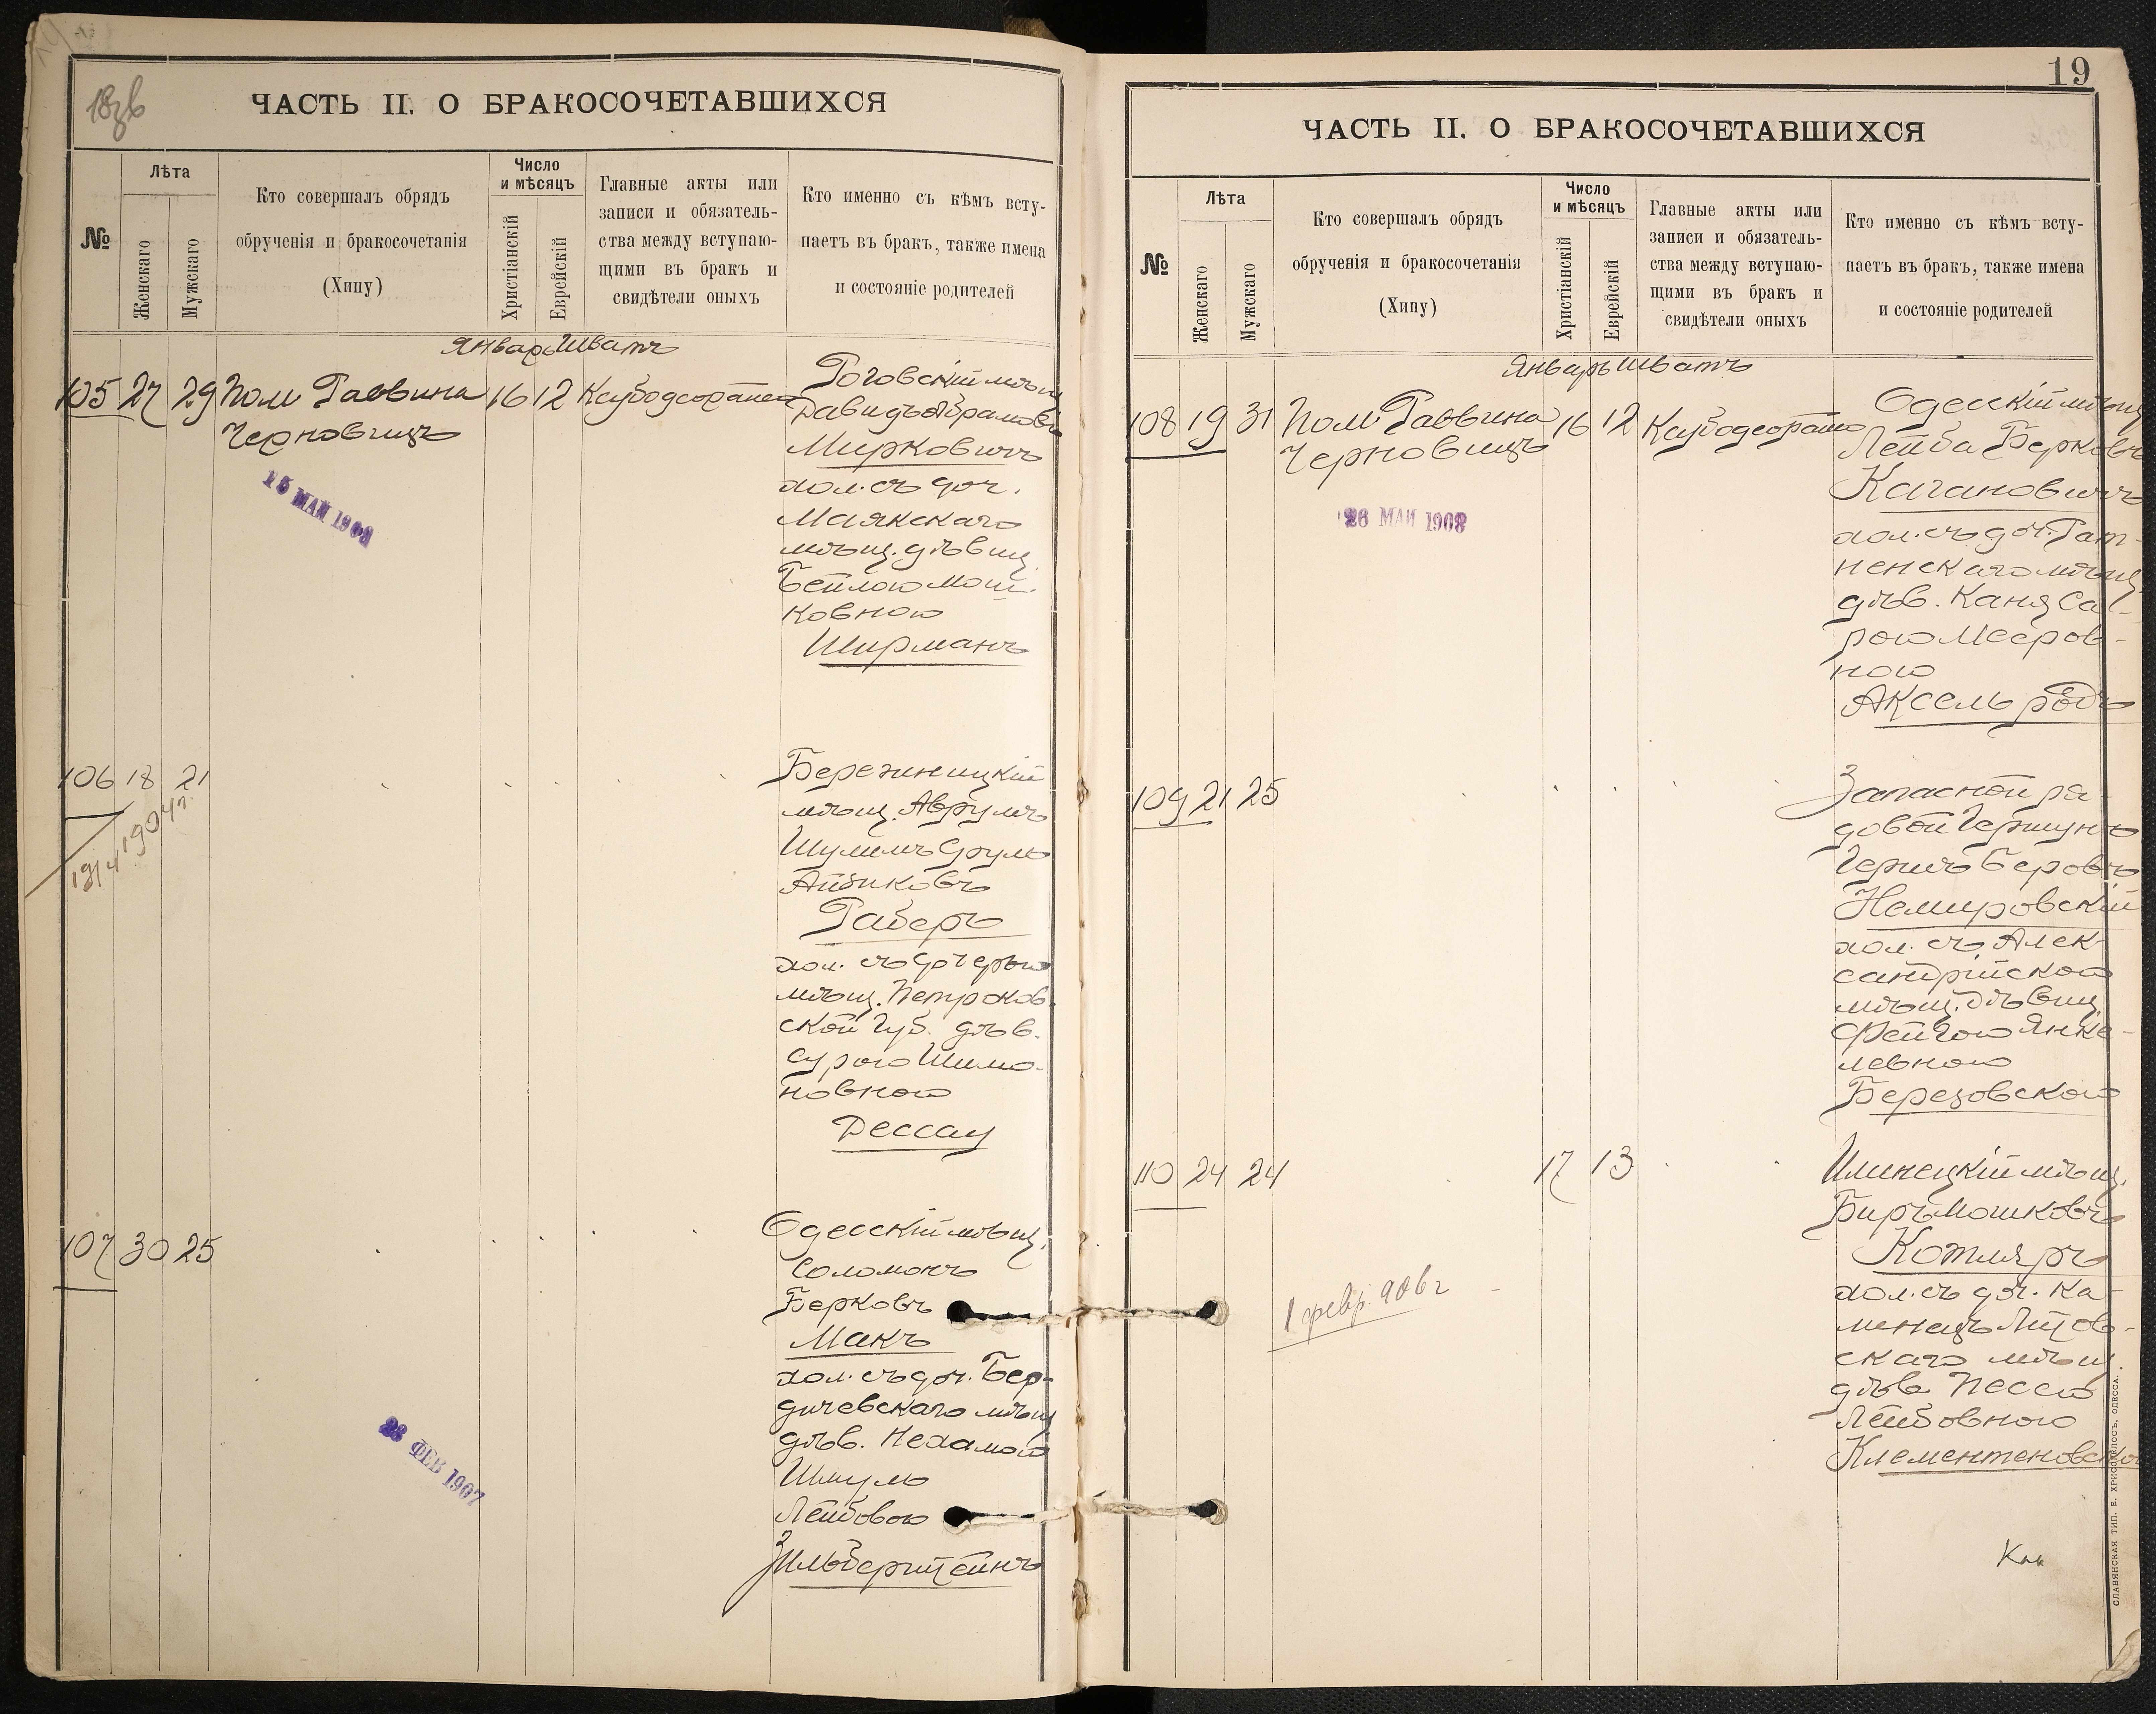 18об
ЧАСТЬ II. О БРАКОСОЧЕТАВШИХСЯ
№
Лѣта
Женскаго
Мужскаго
Кто совершалъ обрядъ
обрученія и бракосочетанія
(Хипу)
Число
и мѣсяцъ
Христіанскій
Еврейскій
Главные акты или
записи и обязатель-
ства между вступаю-
щими въ бракъ и
свидѣтели оныхъ
Кто именно съ кѣмъ всту-
паетъ въ бракъ, также имена
и состояніе родителей
Январь Шватъ
105 27 29 Пом Раввина 16 12
Черновицъ
Роговскій мѣщ
Давидъ Абрамовъ
Мирковичъ
хол. съ доч.
Маякскаго
мѣщ. дѣвиц.
Бейлою Мош-
ковною
Ширманъ
15 МАЙ 1908
106 18 21
1904 г.
1914
Бережницкій
мѣщ. Аврумъ
Шулимъ Сруль
Айзиковъ
Габеръ
хол. съ дочерью
мѣщ. Петроков-
ской Губ. дѣв.
Сурою Шимо-
новною
Дессау
107 30 25
Одесскій мѣщ.
Соломонъ
Берковъ
Макъ
хол. съ доч. Бер-
дичевскаго мѣщ
дѣв. Нехамою
Шмуль
Лейбовою
Зильберштейнъ
23 ФЕВ 1907
19
ЧАСТЬ II. О БРАКОСОЧЕТАВШИХСЯ
№
Лѣта
Женскаго
Мужскаго
Кто совершалъ обрядъ
обрученія и бракосочетанія
(Хипу)
Число
и мѣсяцъ
Христіанскій
Еврейскій
Главные акты или
записи и обязатель-
ства между вступаю-
щими въ бракъ и
свидѣтели оныхъ
Кто именно съ кѣмъ всту-
паетъ въ бракъ, также имена
и состояніе родителей
Январь Шватъ
108 19 31 Пом Раввина 16 12
Черновицъ
Одесскій мѣщ
Лейба Берковъ
Кагановичъ
хол. съ доч. Рат-
ненскаго мѣщ
дѣв. Ханя Са-
рою Мееров-
ною
Аксельродъ
26 МАЙ 1908
109 21 25
Запасной ря-
довой Гершунъ
Гершъ Беровъ
Немировскій
хол. съ Алек-
сандрійскою
мѣщ. дѣвиц
Фейгою Янке-
левною
Березовскою
110 24 24 17 13
Илинецкій мѣщ.
Биръ Мошковъ
Котляръ
хол. съ доч. Ка-
менецъ Литов-
скаго мѣщ.
дѣв Песею
Лейбовною
Клементеновско
1 февр. 906 г
СЛАВЯНСКАЯ ТИП. Е. ХРИСОГЕЛОСЪ, ОДЕССА.